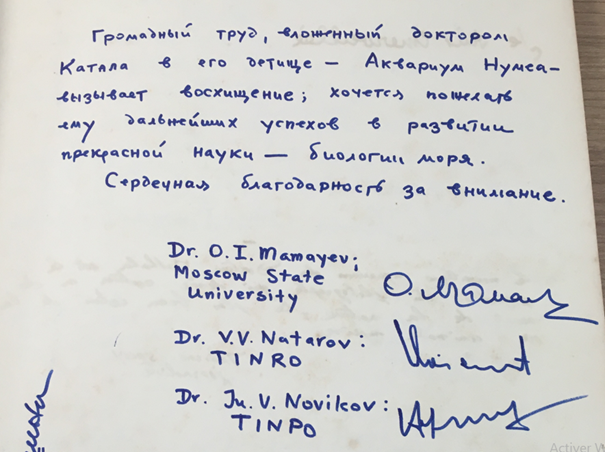 Громадный труд, вложенный доктором
Катала в его детище – Аквариум Нумеа –
вызывает восхищение; хочется пожелать
ему дальнейших успехов в развитии
прекрасной науки – биологии моря.
Сердечная благодарность за внимание.
Dr. O. I. Mamayev;
Moscow State
University
O. Мамаев
Dr. V.V. Natarov:
TINRO
Dr. Ju. V. Novikov:
TINPO
Activer W